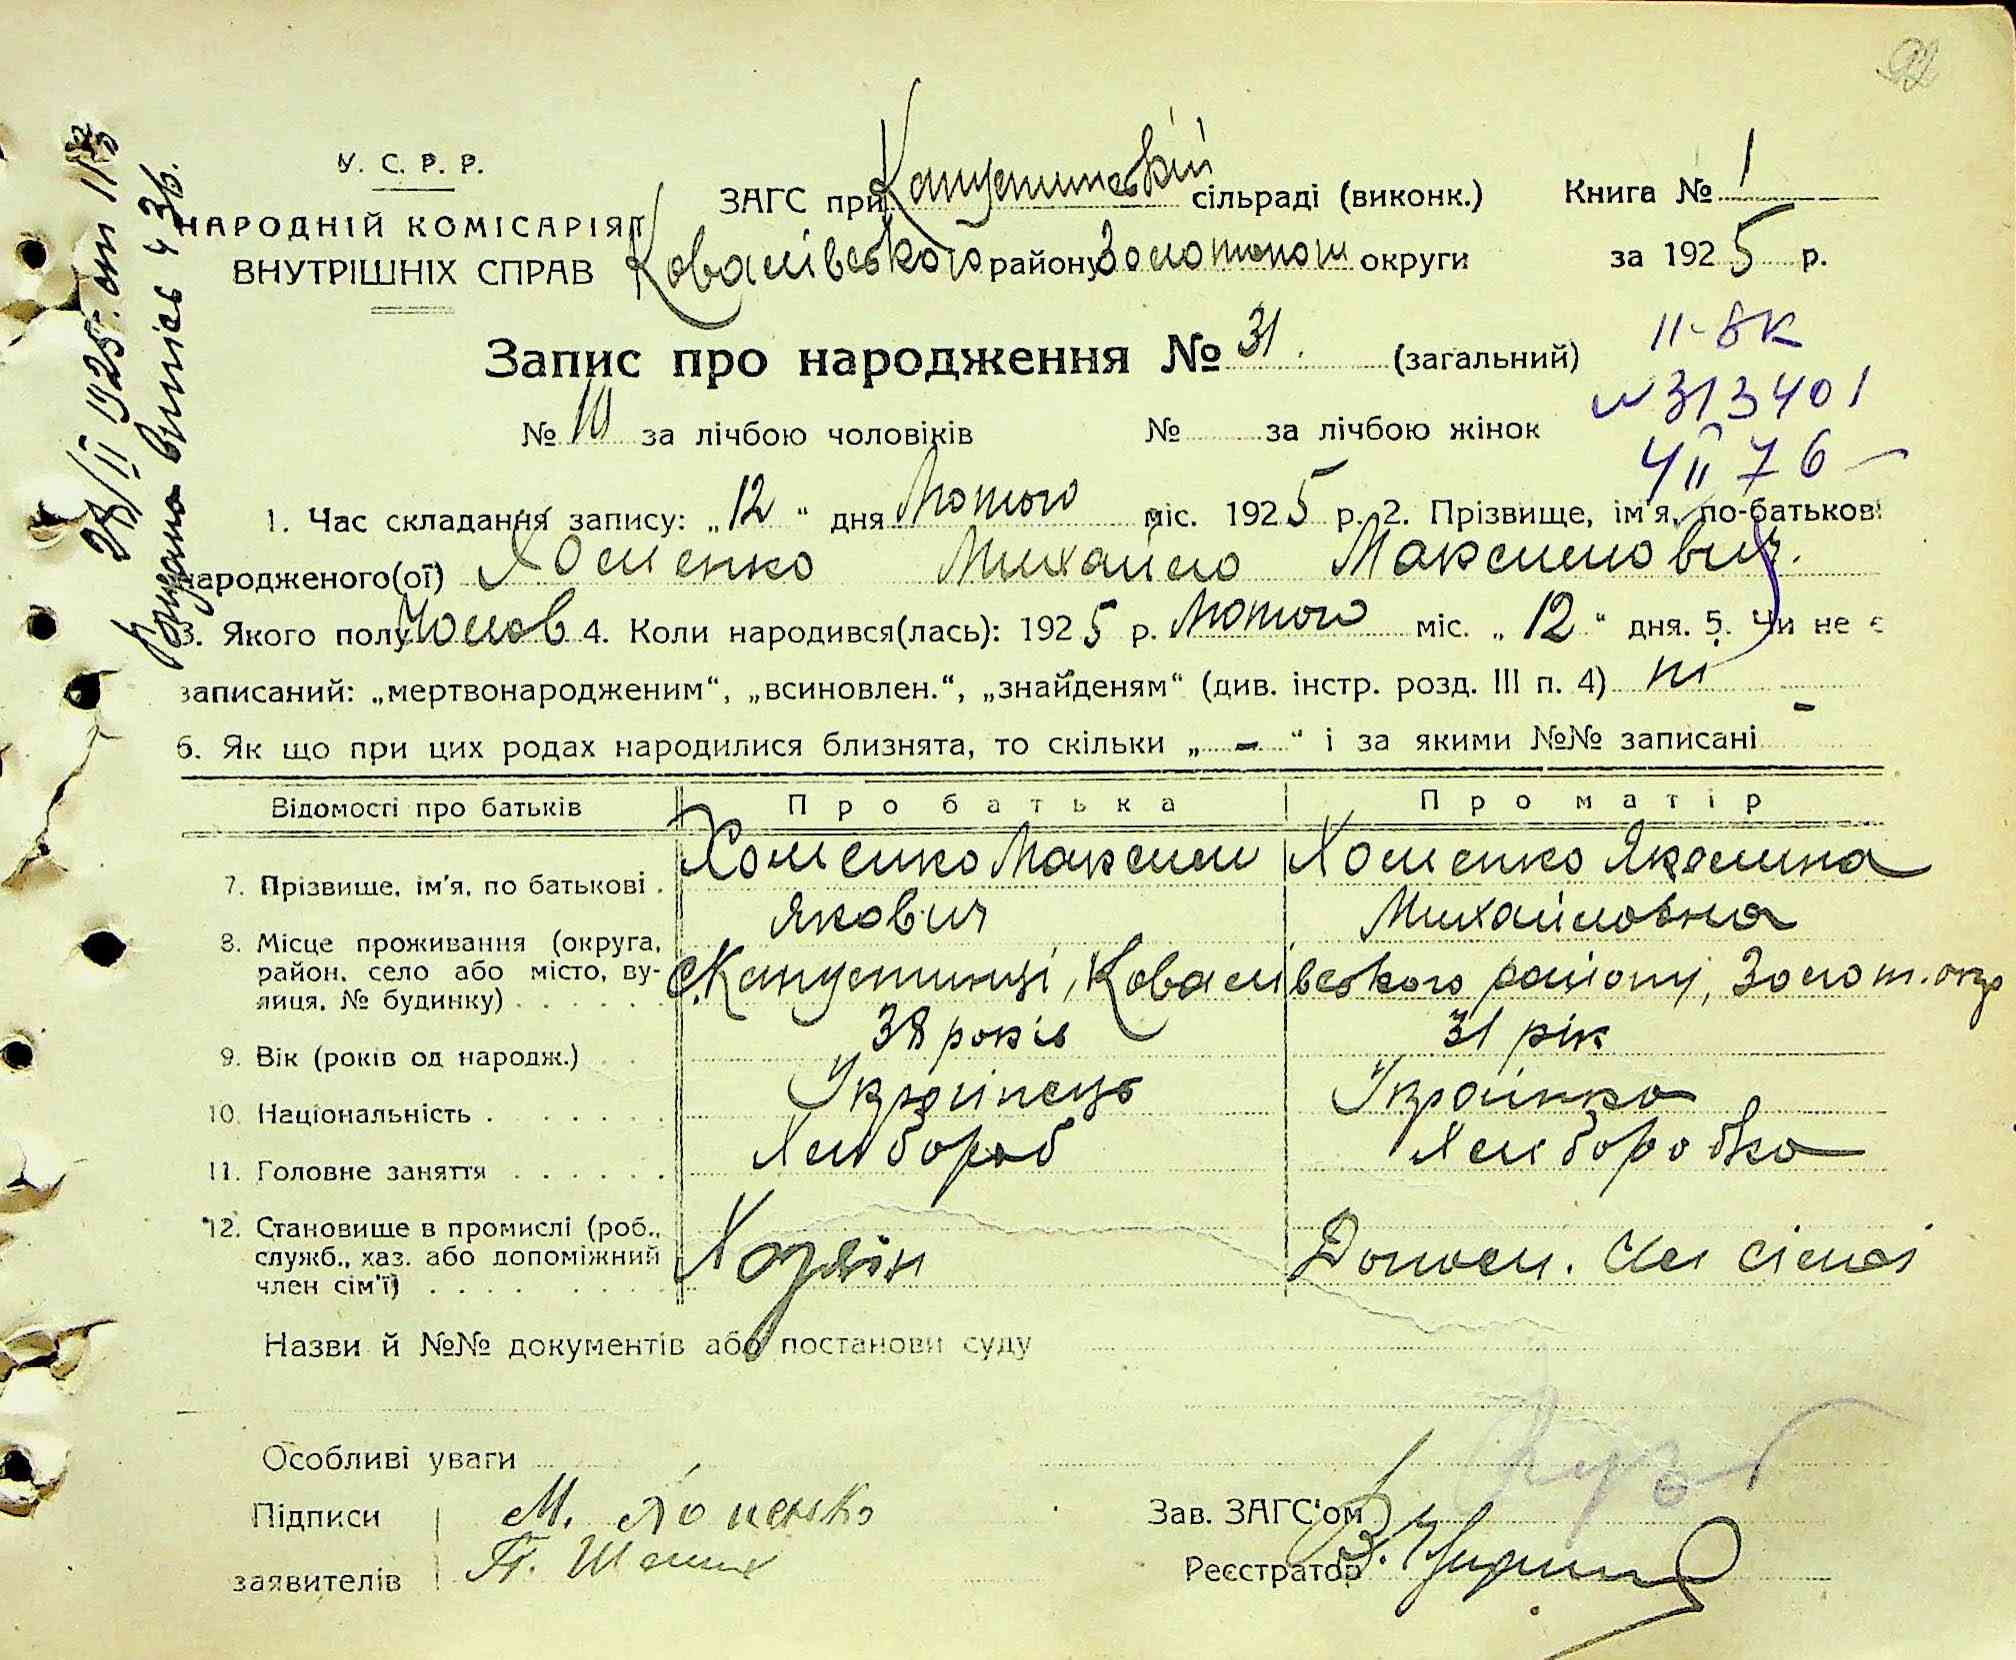 92
У. С. Р. Р.
НАРОДНІЙ КОМІСАРІЯТ
ВНУТРІШНІХ СПРАВ
ЗАГС при Капустинській сільраді (виконк.)
Ковалівського району Золотоніш округи
Книга № 1
за 1925 р.
Запис про народження № 31. (загальний)
ІІ-БК
№ 313401
4 ІІ 76
№ 10 за лічбою чоловіків № за лічбою жінок
1. Час складання запису: „12“ дня Лютого міс. 1925 р. 2. Прізвище, ім'я, по-батькові
народженого(ої) Хоменко Михайло Максимович.
3. Якого полу Чолов 4. Коли народився(лась): 1925 р. Лютого міс. „12“ дня. 5. Чи не є
записаний: „мертвонародженим“, „всиновлен.“, „знайденям“ (див. інстр. розд. III п. 4) ні
6. Як що при цих родах народилися близнята, то скільки „-“ і за якими №№ записані -
Відомості про батьків Про батька Про матір
7. Прізвище, ім'я, по батькові . Хоменко Максим Якович Хоменко Якилина Михайловна
8. Місце проживання (округа,
район, село або місто, ву-
лиця, № будинку) . . . . . с. Капустинці, Ковалівського району, Золот. окр
9. Вік (років од народж.) . . 38 років 31 рік
10. Національність . . . . . . Українець Українка
11. Головне заняття . . . . . . Хлібороб Хліборобка
12. Становище в промислі (роб.,
служб., хаз. або допоміжний
член сім'ї) . . . . . . . . Хозяін Допом. чл сімьі
Назви й №№ документів або постанови суду
Особливі уваги
Підписи М. Хоменко
заявителів П. Шемих
Зав. ЗАГС'ом
Реєстратор
28/ІІ 1925 р.
Видано випись ч 36.